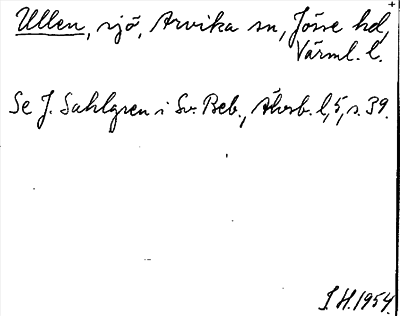 Ullen, sjö, Arvika sn, Jösse hd,
Värml. l.
Se J. Sahlgren i Sv. Beb., Älvsb. l, 5, s. 39.
I H. 1954.